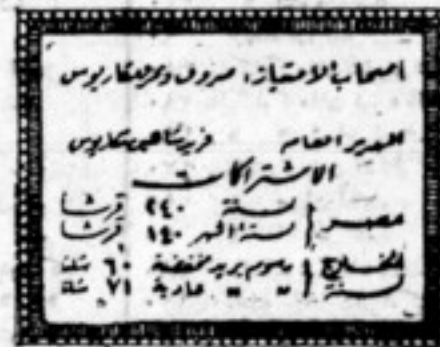 اصحاب الامتياز: صروف ونمر ومكاريوس
المدير العام فريد شاهين مكاريوس
الاشتراكات
مصر سنة ٢٤٠ قرشاً
لستة اشهر ١٤٠ قرشاً
الخارج برسوم بريد مخفضة ٦٠ شلناً
لسنة » » عادية ٧١ شلناً